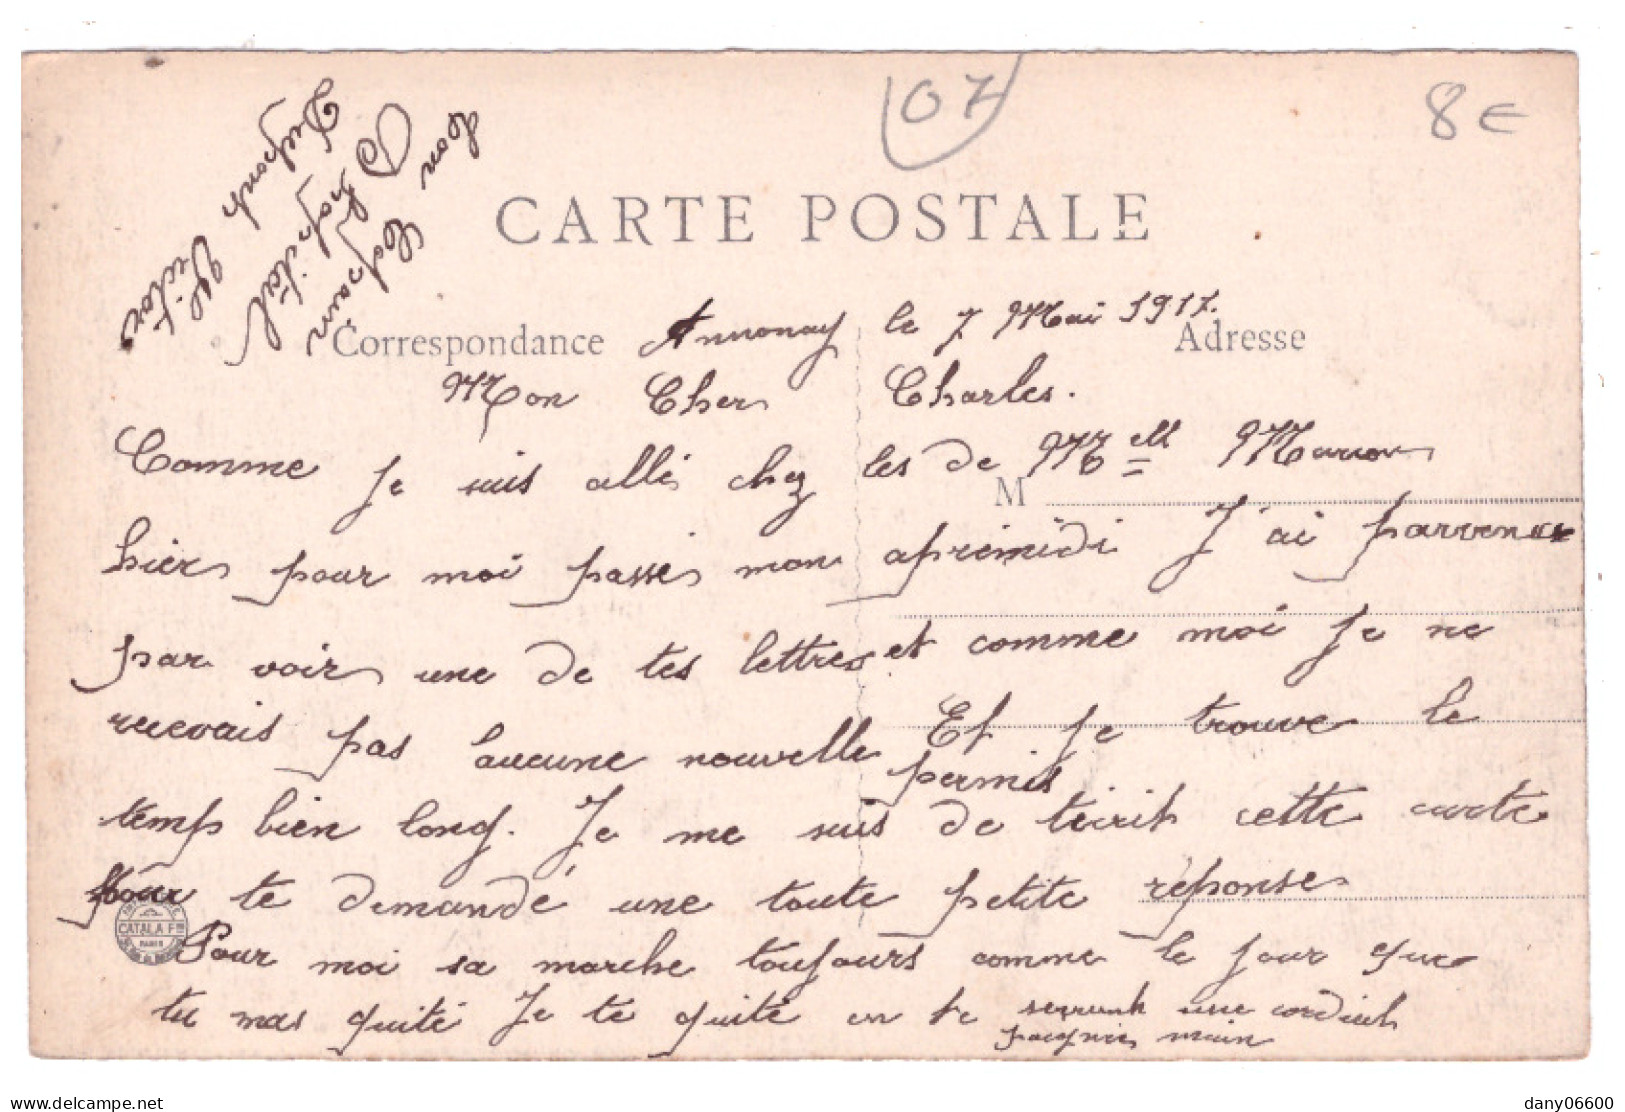 07
8€
CARTE POSTALE
Correspondance
Adresse
Annonay le 7 Mai 1917.
Mon Cher Charles.
Comme je suis allé chez les de Melle Marron
M
hier pour moi passé mon aprémidi J'ai parvenue
par voir une de tes lettres et comme moi je ne
recevais pas aucune nouvelle Et je trouve le
temp bien long. Je me suis permis de t'écrit cette carte
pour te demandé une toute petite réponse
CATALA Fres
PARIS
Pour moi sa marche toujours comme le jour que
tu mas quité Je te quite en te serrant une cordiale
poigniés main
Ton Copain
hospital
Victor
delcampe.net
dany06600